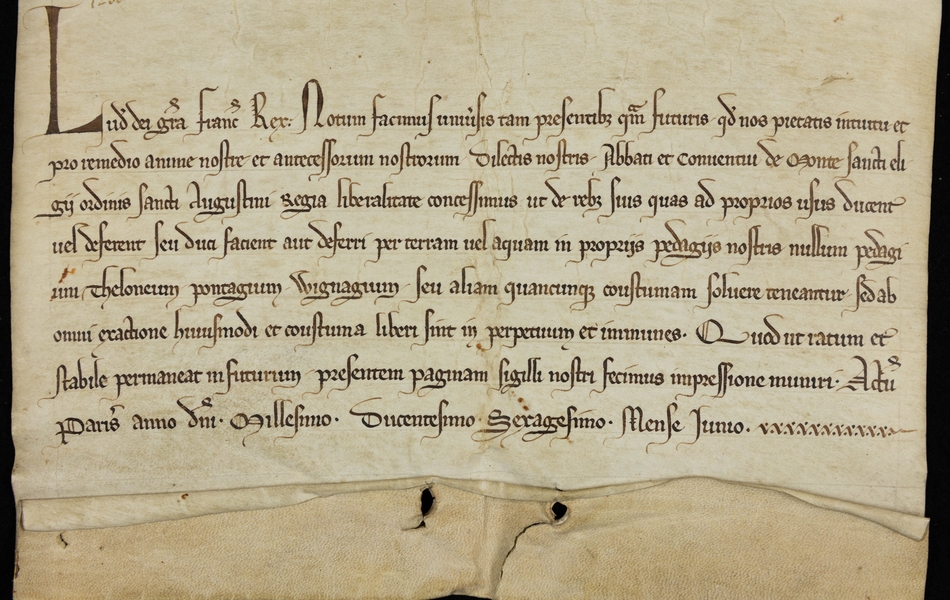 Lud' dei gr̃a Franc̃ Rex. Notum facimus uniũsis tam presentibꝫ qm̃ futuris. qđ nos pietatis intuitu et
pro remedio anime nostre et antecessorum nostrorum Dilectis nostris Abbati et Conuentui de Monte sancti eli
gij ordinis sancti Augustini Regia liberalitate concessimus ut de rebꝫ suis quas ad proprios usus ducent
uel deferent seu duci facient aut deferri per terram uel aquam in proprijs pedagijs nostris nullum pedagi
um Theloneum pontagium Wignagium seu aliam quancunqꝫ coustumam soluere teneantur. sed ab
omni exactione huiusmodi et coustuma liberi sint in perpetuum et inmunes. Quod ut ratum et
stabile permaneat in futurum presentem paginam sigilli nostri fecimus inpressione muniri. Actũ
Paris̃ anno dñi. Millesimo. Ducentesimo. Sexagesimo. Mense Junio. xxxxxxxxxxxx